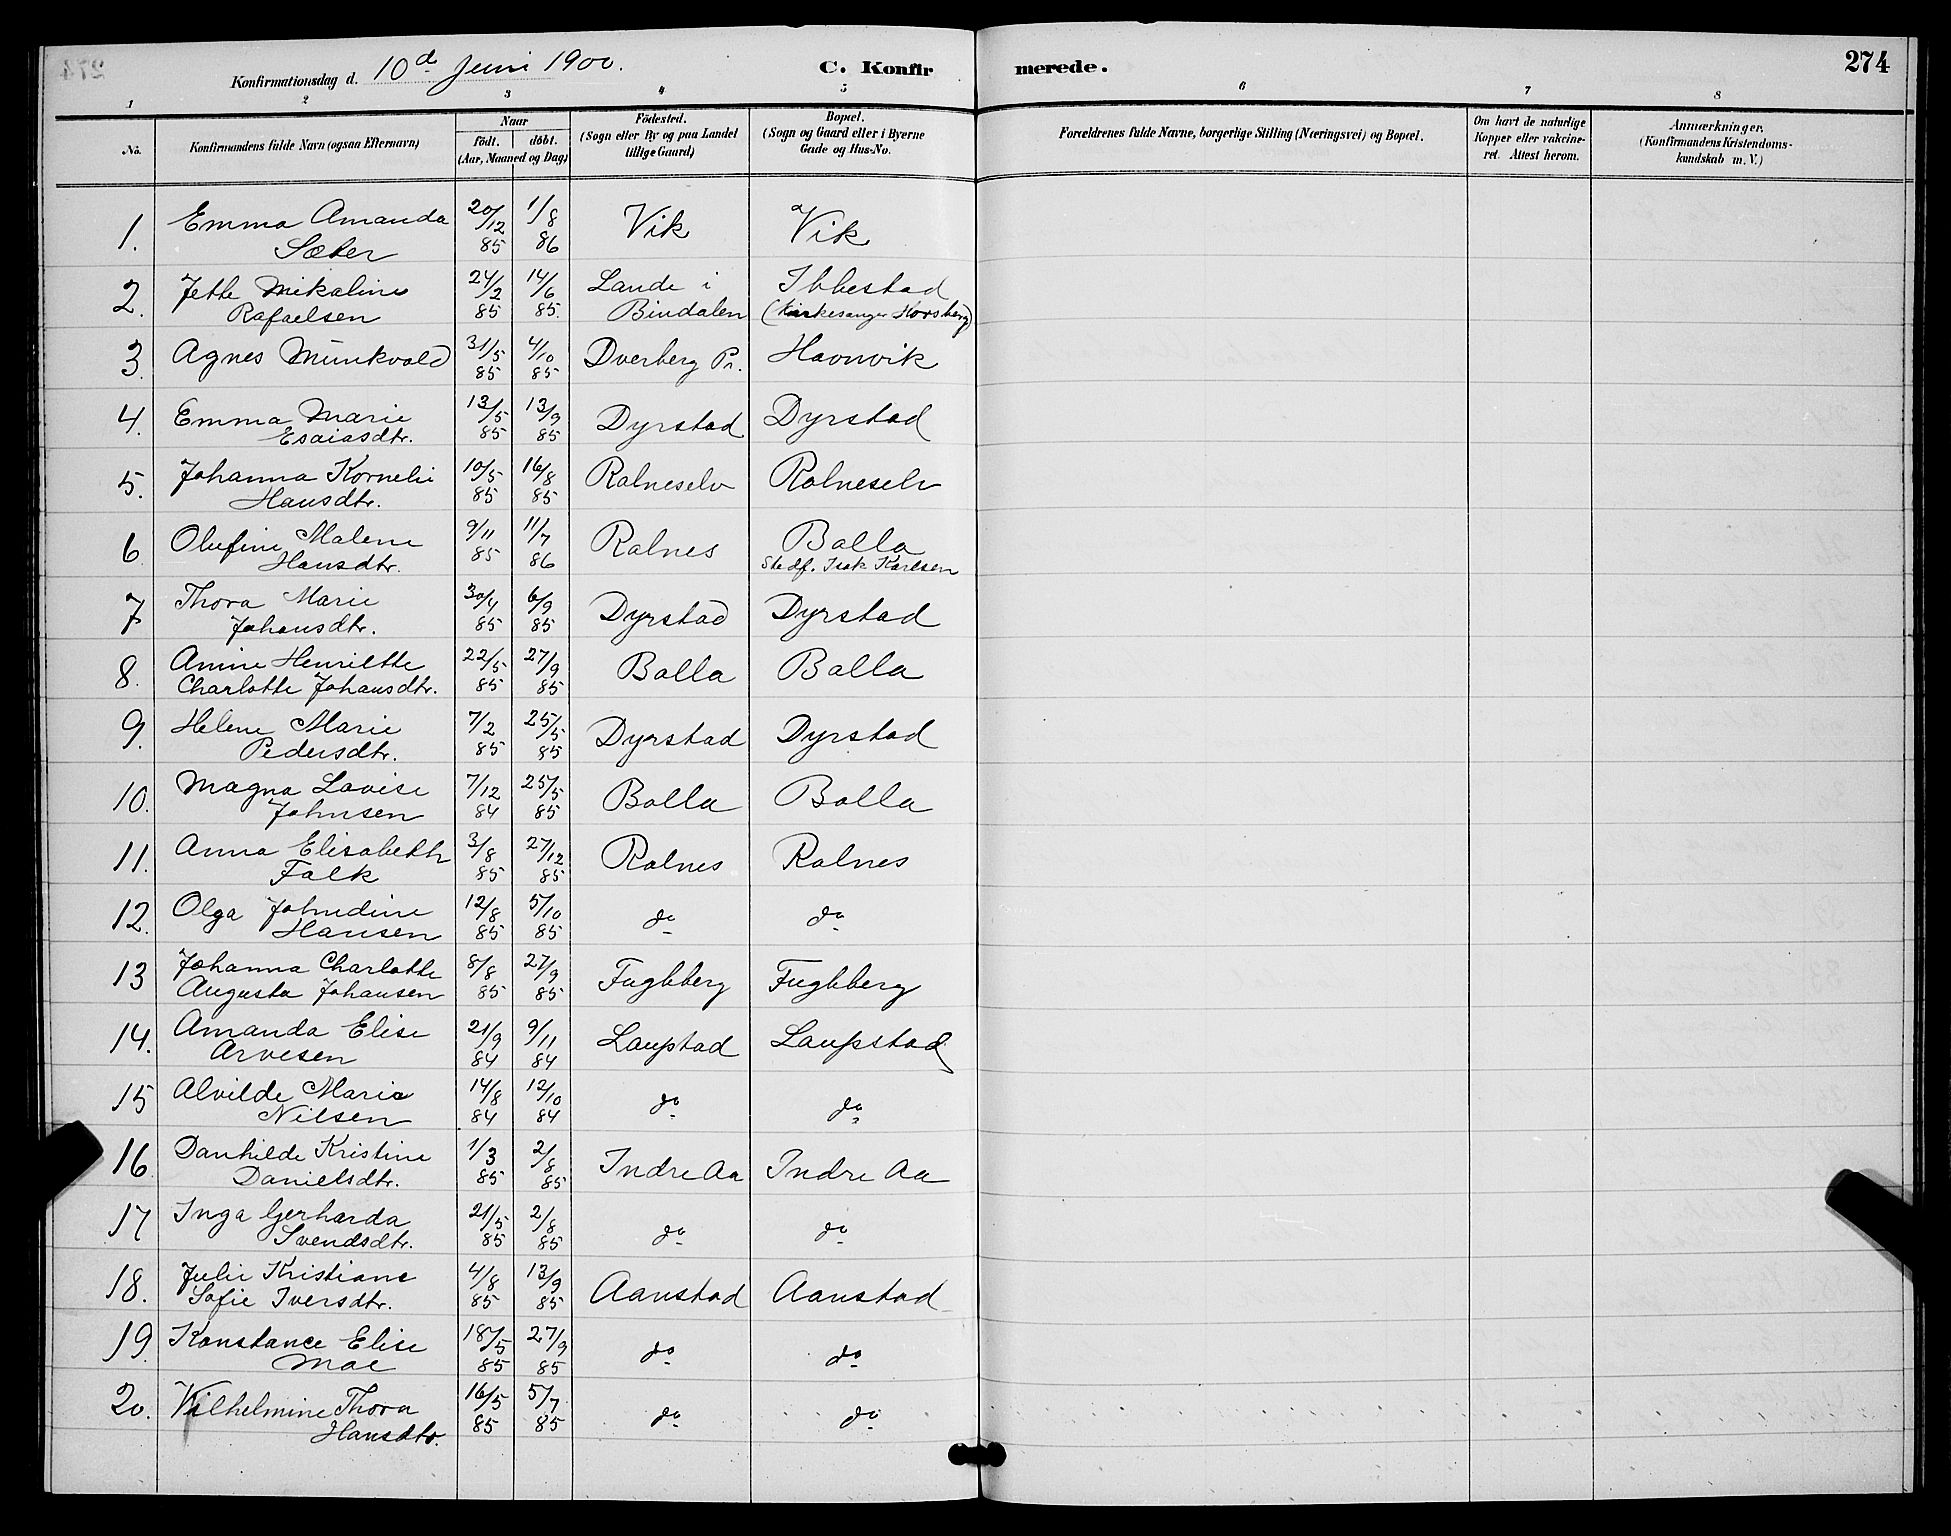 Konfirmationsdag d. 10de Juni 1900. C. Konfirmerede. 274
1 2 3 4 5 6 7 8
No. Konfirmandens fulde Navn (ogsaa Efternavn) Naar født. døbt. (Aar, Maaned og Dag) Fødested. (Sogn eller By og paa Landet tillige Gaard) Bopæl. (Sogn og Gaard eller i Byerne Gade og Hus-No. Forældrenes fulde Navne, borgerlige Stilling (Næringsvei) og Bopæl. Om havt de naturlige Kopper eller vakcineret. Attest herom. Anmærkninger. (Konfirmandens Kristendomskundskab m. V.)
1. Emma Amanda 20/12 1/8 Vik Vik
Sæter 85 86
2. Jette Mikaline 24/2 14/6 Lande i Ibbestad
Rafaelsen 85 85. Bindalen (Kirkesanger Horsberg)
3. Agnes Munkvold 31/5 4/10 Dverberg Pr. Havnvik
85 85
4. Emma Marie 13/5 13/9 Dyrstad Dyrstad
Esaiasdtr. 85 85
5. Johanna Korneli 10/5 16/8 Rolneselv Rolneselv
Hansdtr. 85 85
6 Olufine Malene 9/11 11/7 Rolnes Bolla
Hansdtr. 85 86 Stedf. Isak Karlsen
7 Thora Marie 30/4 6/9 Dyrstad Dyrstad
Johansdtr. 85 85
8. Anine Henriette 22/5 27/9 Bolla Bolla
Charlotte Johansdtr. 85 85
9. Helene Marie 7/2 25/5 Dyrstad Dyrstad
Pedersdtr. 85 85
10. Magna Lovise 7/12 25/5 Bolla Bolla
Johnsen 84 85
11. Anna Elisabeth 3/8 27/12 Rolnes Rolnes
Falk 85 85
12. Olga Johndine 12/8 5/10 do do
Hansen 85 85
13 Johanna Charlotte 8/8 27/9 Fuglberg Fuglberg
Augusta Johansen 85 85
14. Amanda Elise 21/9 9/11 Laupstad Laupstad
Arvesen 84 84
15 Alvilde Maria 14/8 12/10 do do
Nilsen 84 84
16 Danhilde Kristine 1/3 2/8 Indre Aa Indre Aa
Danielsdtr. 85 85
17 Inga Gerharda 21/5 2/8 do do
Svendsdtr. 85 85
18. Julie Kristiane 4/8 13/9 Aanstad Aanstad
Sofie Iversdtr. 85 85
19. Konstance Elise 18/5 27/9 do do
Moe 85 85
20. Vilhelmine Thora 16/5 5/7 do do
Hansdtr. 85 85